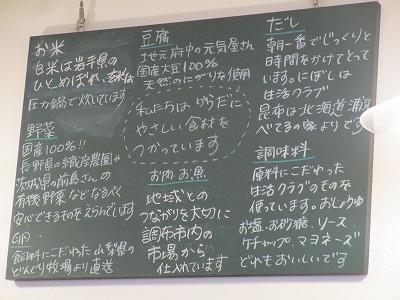 お米
白米は岩手県の
ひとめぼれ、玄米は
圧力鍋で炊いています
野菜
国産100%!!
長野県の織座農園や
茨城県の前島さんの
有機野菜などなるべく
安心できるものをえらんでいます
卵
飼料にこだわった山梨県の
どんぐり牧場より直送
豆腐
地元府中の元気屋さん
国産大豆100%
天然のにがりを使用
私たちは からだに
やさしい食材を
つかっています
お肉お魚
地域との
つながりを大切に
調布市内の
市場から
仕入れています
だし
朝一番でじっくりと
時間をかけてとって
います。にぼしは
生活クラブ
昆布は北海道浦河
べてるの家よりです
調味料
原料にこだわった
生活クラブのものを
使っています。おしょうゆ
お塩、お砂糖、ソース、
ケチャップ、マヨネーズ
どれもおいしいです